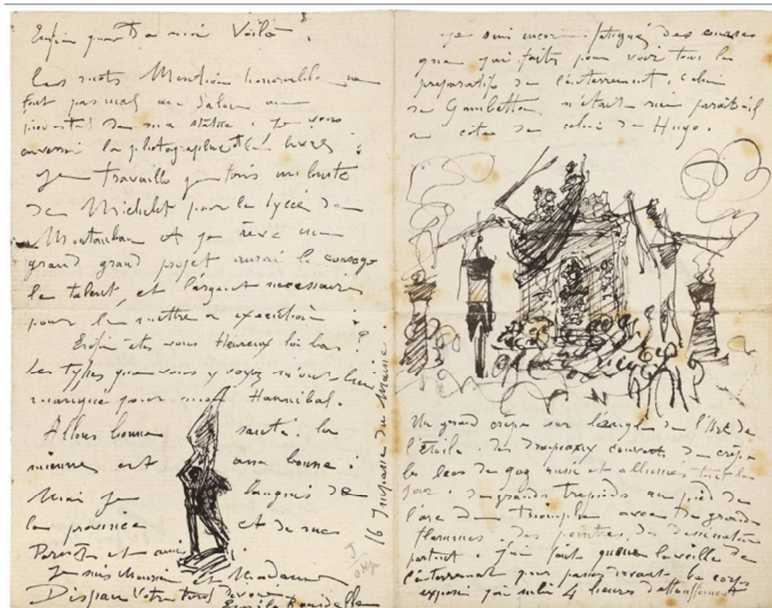 Enfin quant à moi Voilà :
Les mots Mention honorable ne
font pas mal au Salon au
piedestal de ma statue. Je vous
enverrai la photographie
Je travaille un buste
de Michelet pour le lycée de
Montauban et je rêve un
grand grand projet aurai le courage
le talent, et l'argent necessaires
pour le mettre a execution :
Enfin êtes vous Heureux là bas ?
Les types que vous y voyez
manqué pour mon Hannibal.
Allons bonne santé. la
mienne est assez bonne :
Mais je languis de
la province et de mes
Parents et amis :
Je suis Monsieur et Madame
Votre tout devoué
Emile Bourdelle
16 Impasse du Maine.
je suis encore fatigué des courses
que j'ai faites pour voir tous les
préparatifs de l'enterrement. Celui
de Gambetta n'était rien paraît-il
a côté de celui de Hugo.
Un grand crêpe sur l'angle de l'Arc de
l'Etoile. des drapeaux couverts de crêpe
les becs de gaz aussi et allumés tout le
jour. de grands trepieds au pied de
l'arc de triomphe avec de grandes
flammes. des peintres, des dessinateurs
partout. J'ai fait queue la veille de
l'enterrement pour passer devant le corps
exposé j'ai subi 4 heures d'étouffement